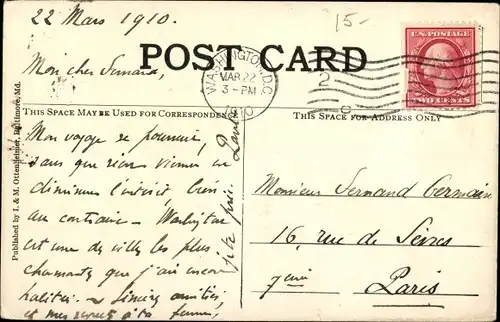 22 Mars 1910.
15-
POST CARD
WASHINGTON, D.C.
MAR 22
3-PM
1910
2
U.S. POSTAGE
TWO CENTS
Mon cher Fernand,
THIS SPACE MAY BE USED FOR CORRESPONDENCE
THIS SPACE FOR ADDRESS ONLY
Published by I. & M. Ottenheimer, Baltimore, Md.
Mon voyage se poursuit,
sans que rien vienne en
diminuer l'intérêt, bien
au contraire - Washington
est une des villes les plus
charmantes que j'aie encore
habitées - Sincères amitiés,
et mes à ta femme,
Monsieur Fernand Germain
16, rue de Sèvres
7ème
Paris